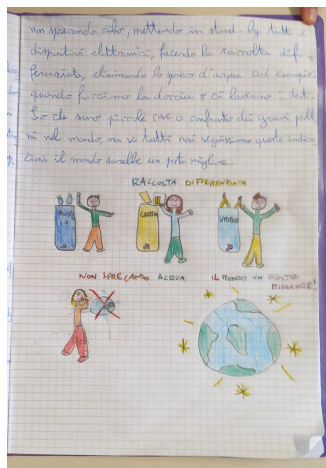 non sprecando cibo, mettendo in stand-by tutti i
dispositivi elettronici, facendo la raccolta dif
ferenziata, eliminando lo spreco d'acqua ad esempio
quando facciamo la doccia o ci laviamo i denti.
So che sono piccole cose a confronto dei gravi proble
mi nel mondo, ma se tutti noi seguissimo queste indica
zioni il mondo sarebbe un posto migliore.
RACCOLTA DIFFERENZIATA
CARTA
UMIDO
NON SPRECANDO ACQUA
IL MONDO UN POSTO
MIGLIORE!